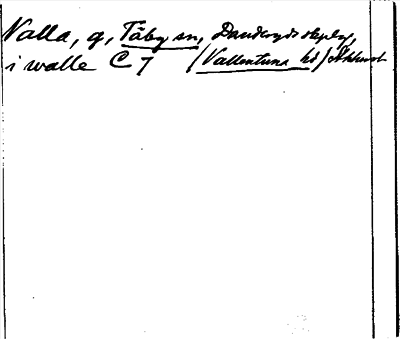 Valla, g, Täby sn, Danderyds skplg,
i walle C 7 (Vallentuna hd)